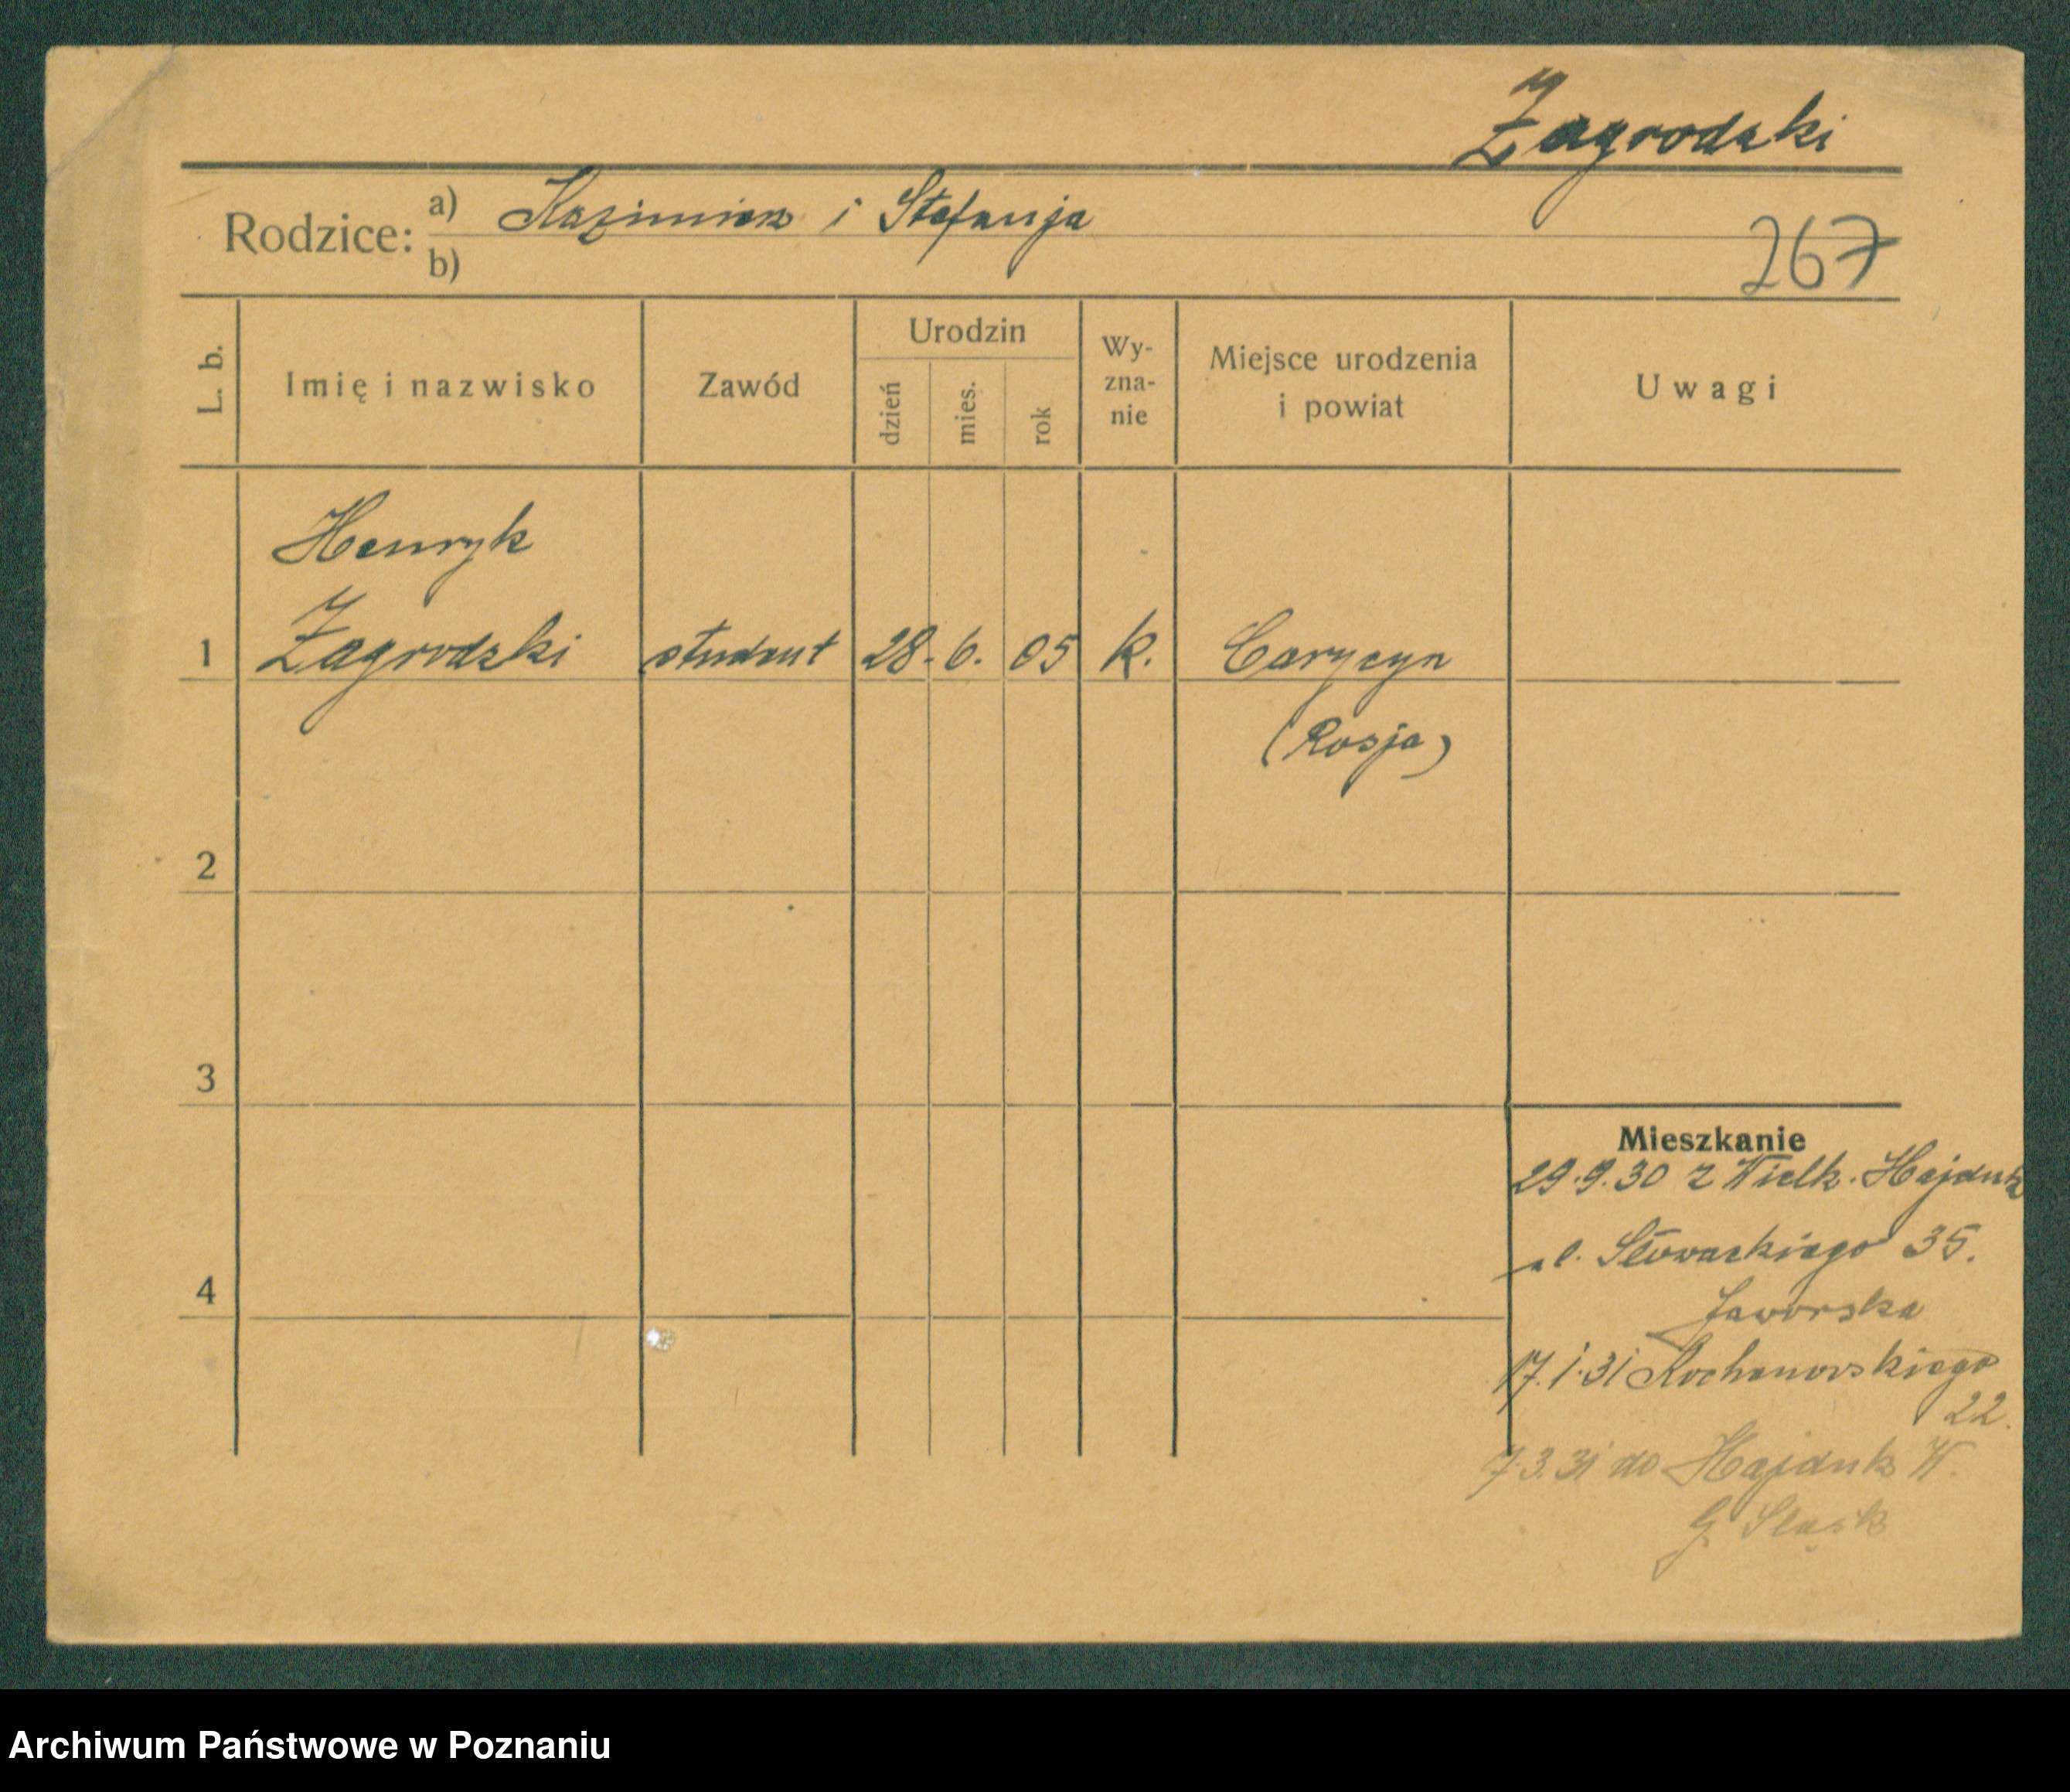 Zagrodzki
Rodzice: a) Kazimierz i Stefanja
b)
267
L. b. Imię i nazwisko Zawód Urodzin dzień mies. rok Wy-zna-nie Miejsce urodzenia i powiat Uwagi
Henryk
1 Zagrodzki student 28. 6. 05 k. Carycyn
(Rosja)
2
3
Mieszkanie
29.9.30 z Wielk. Hajduk
ul. Słowackiego 35.
4
Jaworska
17.1.31 Kochanowskiego
22.
7.3.31 do Hajduk W.
G. Śląsk
Archiwum Państwowe w Poznaniu